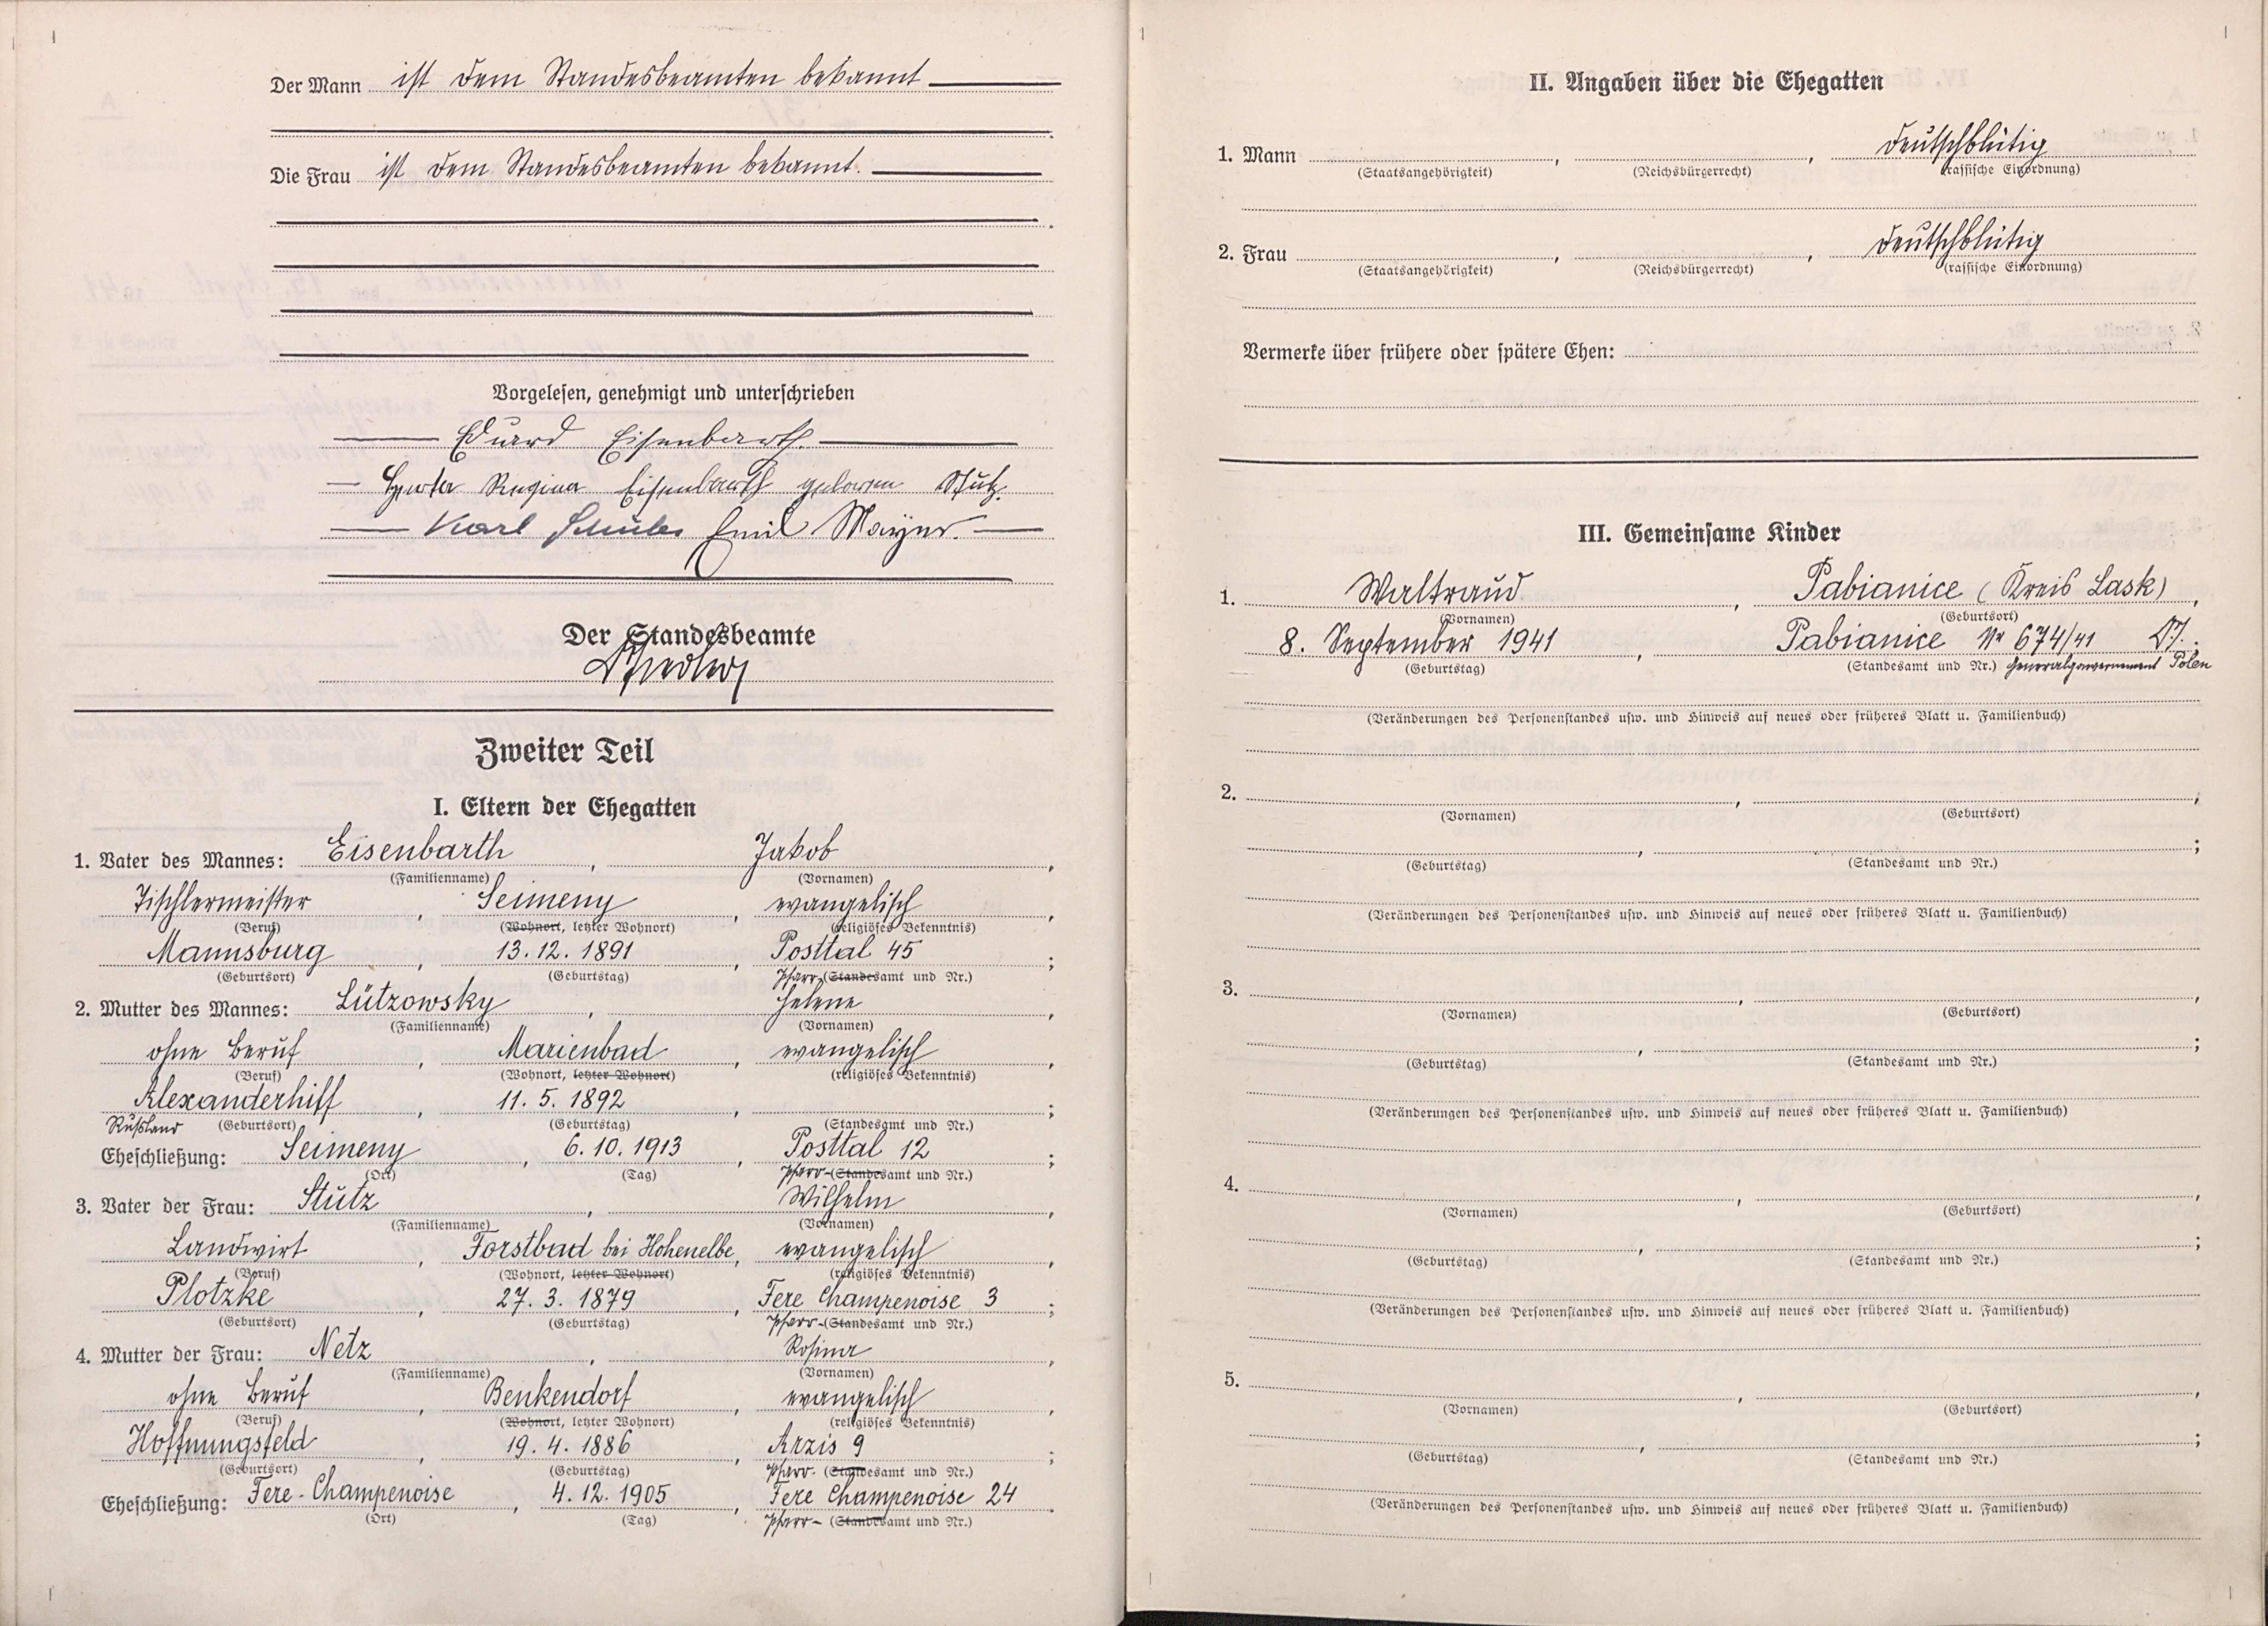 Der Mann ist dem Standesbeamten bekannt
Die Frau ist dem Standesbeamten bekannt.
Vorgelesen, genehmigt und unterschrieben
Eduard Eisenbarth
Herta Regina Eisenbarth geboren Stutz.
Karl Schuler Emil Mayer.
Der Standesbeamte
Zweiter Teil
I. Eltern der Ehegatten
1. Vater des Mannes: Eisenbarth, Jakob,
(Familienname) (Vornamen)
Tischlermeister, Seimeny, evangelisch,
(Beruf) (Wohnort, letzter Wohnort) (religiöses Bekenntnis)
Mannsburg, 13.12.1891, Posttal 45;
(Geburtsort) (Geburtstag) Pfarr-(Standesamt und Nr.)
2. Mutter des Mannes: Lützowsky, Helene,
(Familienname) (Vornamen)
ohne Beruf, Marienbad, evangelisch,
(Beruf) (Wohnort, letzter Wohnort) (religiöses Bekenntnis)
Alexanderhilf, 11.5.1892, ;
Rußland (Geburtsort) (Geburtstag) (Standesamt und Nr.)
Eheschließung: Seimeny, 6.10.1913, Posttal 12;
(Ort) (Tag) Pfarr-(Standesamt und Nr.)
3. Vater der Frau: Stutz, Wilhelm,
(Familienname) (Vornamen)
Landwirt, Forstbad bei Hohenelbe, evangelisch,
(Beruf) (Wohnort, letzter Wohnort) (religiöses Bekenntnis)
Plotzke, 27.3.1879, Fere Champenoise 3;
(Geburtsort) (Geburtstag) Pfarr-(Standesamt und Nr.)
4. Mutter der Frau: Netz, Rosina,
(Familienname) (Vornamen)
ohne Beruf, Benkendorf, evangelisch,
(Beruf) (Wohnort, letzter Wohnort) (religiöses Bekenntnis)
Hoffnungsfeld, 19.4.1886, Arzis 9;
(Geburtsort) (Geburtstag) Pfarr-(Standesamt und Nr.)
Eheschließung: Fere-Champenoise, 4.12.1905, Fere Champenoise 24.
(Ort) (Tag) Pfarr-(Standesamt und Nr.)
II. Angaben über die Ehegatten
1. Mann , , deutschblütig
(Staatsangehörigkeit) (Reichsbürgerrecht) (rassische Einordnung)
2. Frau , , deutschblütig
(Staatsangehörigkeit) (Reichsbürgerrecht) (rassische Einordnung)
Vermerke über frühere oder spätere Ehen:
III. Gemeinsame Kinder
1. Waltraud, Pabianice (Kreis Lask),
(Vornamen) (Geburtsort)
8. September 1941, Pabianice Nr 674/41
(Geburtstag) (Standesamt und Nr.) Generalgouvernement Polen
(Veränderungen des Personenstandes usw. und Hinweis auf neues oder früheres Blatt u. Familienbuch)
2. , ,
(Vornamen) (Geburtsort)
, ;
(Geburtstag) (Standesamt und Nr.)
(Veränderungen des Personenstandes usw. und Hinweis auf neues oder früheres Blatt u. Familienbuch)
3. , ,
(Vornamen) (Geburtsort)
, ;
(Geburtstag) (Standesamt und Nr.)
(Veränderungen des Personenstandes usw. und Hinweis auf neues oder früheres Blatt u. Familienbuch)
4. , ,
(Vornamen) (Geburtsort)
, ;
(Geburtstag) (Standesamt und Nr.)
(Veränderungen des Personenstandes usw. und Hinweis auf neues oder früheres Blatt u. Familienbuch)
5. , ,
(Vornamen) (Geburtsort)
, ;
(Geburtstag) (Standesamt und Nr.)
(Veränderungen des Personenstandes usw. und Hinweis auf neues oder früheres Blatt u. Familienbuch)